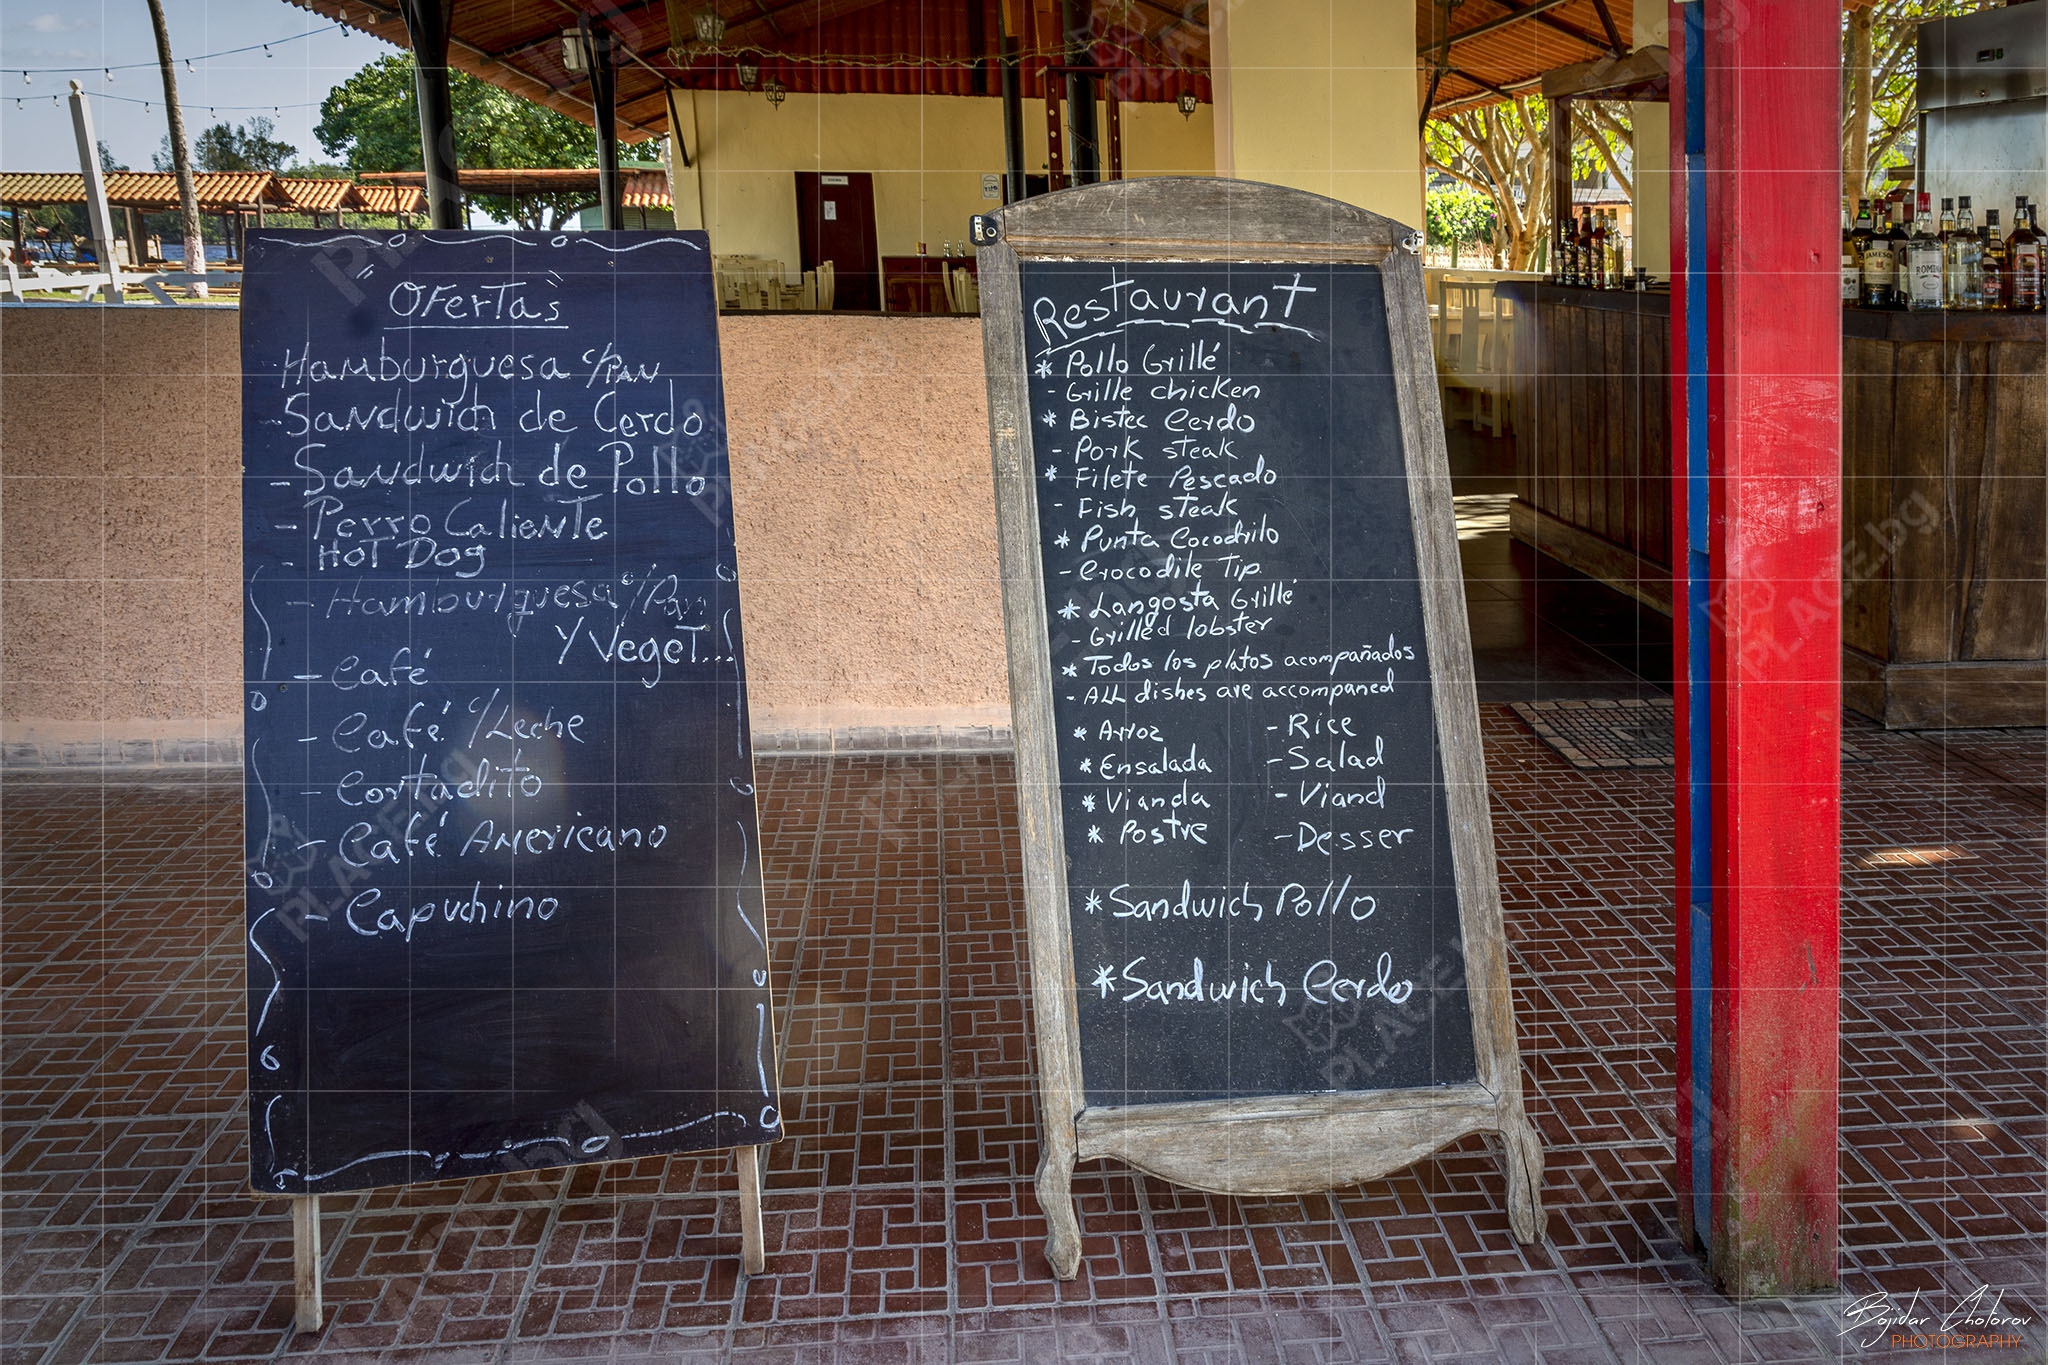 "Ofertas"
- Hamburguesa c/Pan
- Sandwich de Cerdo
- Sandwich de Pollo
- Perro Caliente
- Hot Dog
- Hamburguesa c/Pan
Y Veget...
- Café
- Café c/Leche
- Cortadito
- Café Americano
- Capuchino
Restaurant
* Pollo Grillé
- Grille chicken
* Bistec Cerdo
- Pork steak
* Filete Pescado
- Fish steak
* Punta Cocodrilo
- Crocodile Tip
* Langosta Grillé
- Grilled lobster
* Todos los platos acompañados
- ALL dishes are accompaned
* Arroz - Rice
* Ensalada - Salad
* Vianda - Viand
* Postre - Desser
* Sandwich Pollo
* Sandwich Cerdo
JAMESON
PLACE.bg
Bojidar Cholorov
PHOTOGRAPHY